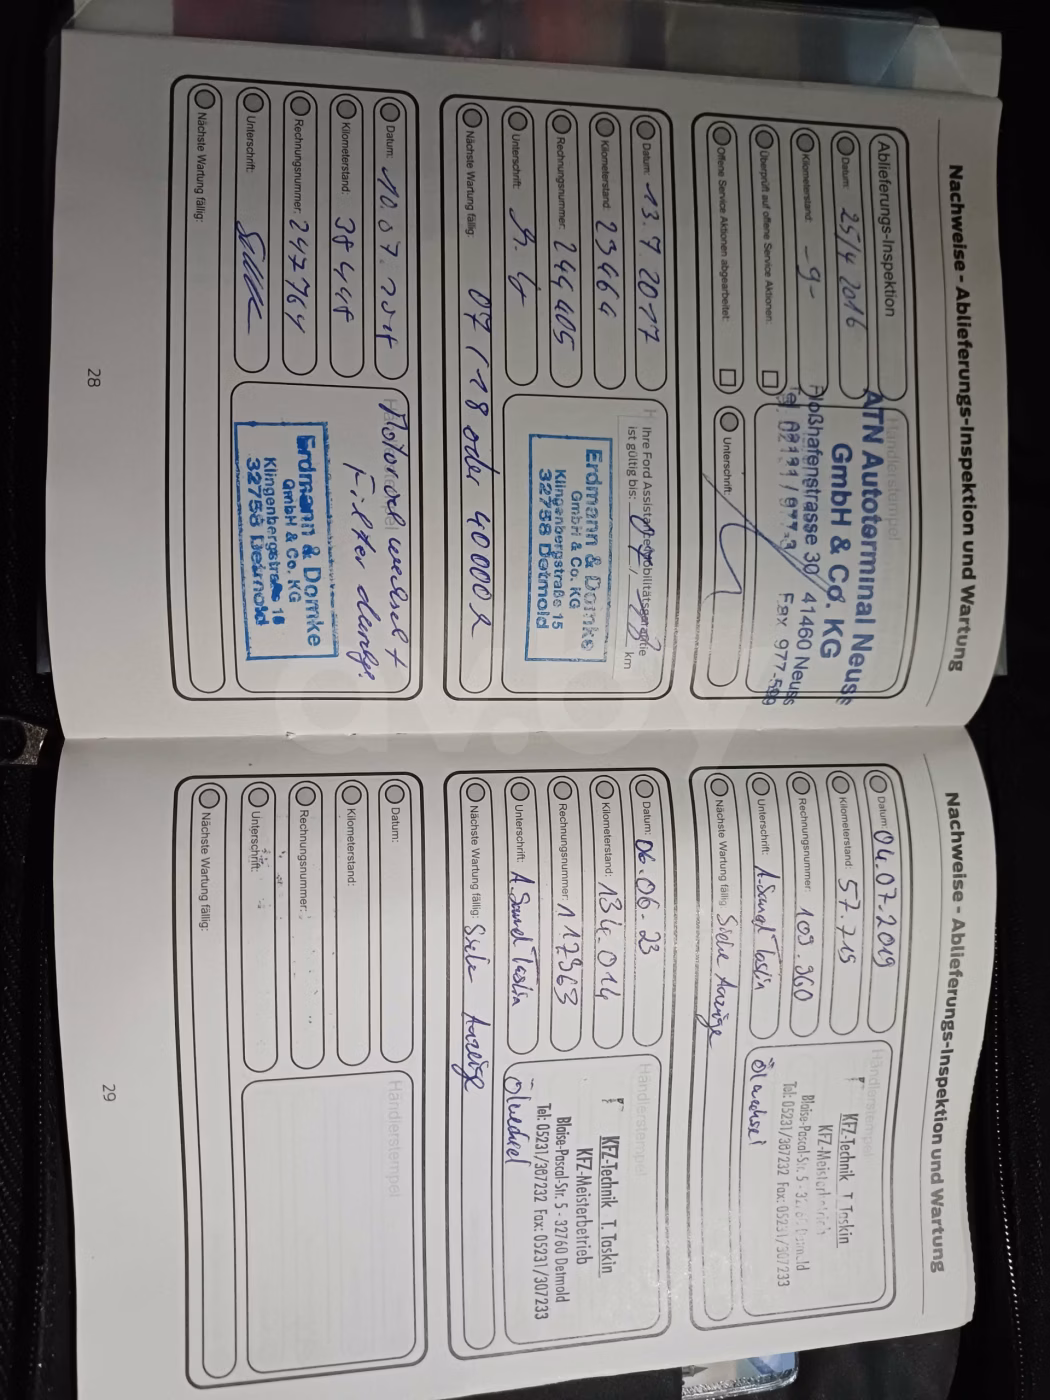 Nachweise - Ablieferungs-Inspektion und Wartung
Ablieferungs-Inspektion
Händlerstempel
Datum: 25/4 2016
Kilometerstand: -9-
Überprüft auf offene Service Aktionen:
Offene Service Aktionen abgearbeitet:
ATN Autoterminal Neuss
GmbH & Co. KG
Floßhafenstrasse 30 41460 Neuss
Fax 977-599
Unterschrift:
Datum: 13.7.2017
Kilometerstand: 23464
Rechnungsnummer: 244405
Unterschrift:
Nächste Wartung fällig: 07/18 oder 40000
Ihre Ford Assistance Mobilitätsgarantie
ist gültig bis: km
Erdmann & Domke
GmbH & Co. KG
Klingenbergstraße 15
32758 Detmold
Datum: 10.07.
Kilometerstand: 38441
Rechnungsnummer: 247764
Unterschrift:
Nächste Wartung fällig:
Motorölwechsel +
Filter
Erdmann & Domke
GmbH & Co. KG
Klingenbergstraße 15
32758 Detmold
28
Nachweise - Ablieferungs-Inspektion und Wartung
Datum: 04.07.2019
Kilometerstand: 57.715
Rechnungsnummer: 109.960
Unterschrift:
Nächste Wartung fällig: Siehe Anzeige
Händlerstempel
KFZ-Technik T. Taskin
KFZ-Meisterbetrieb
Blaise-Pascal-Str. 5 - 32760 Detmold
Tel: 05231/387232 Fax: 05231/307233
Ölwechsel
Datum: 06.06.23
Kilometerstand: 134.014
Rechnungsnummer: 117963
Unterschrift:
Nächste Wartung fällig: Siehe Anzeige
Händlerstempel
KFZ-Technik T. Taskin
KFZ-Meisterbetrieb
Blaise-Pascal-Str. 5 - 32760 Detmold
Tel: 05231/387232 Fax: 05231/307233
- Ölwechsel
Datum:
Kilometerstand:
Rechnungsnummer:
Unterschrift:
Nächste Wartung fällig:
Händlerstempel
29
av.by